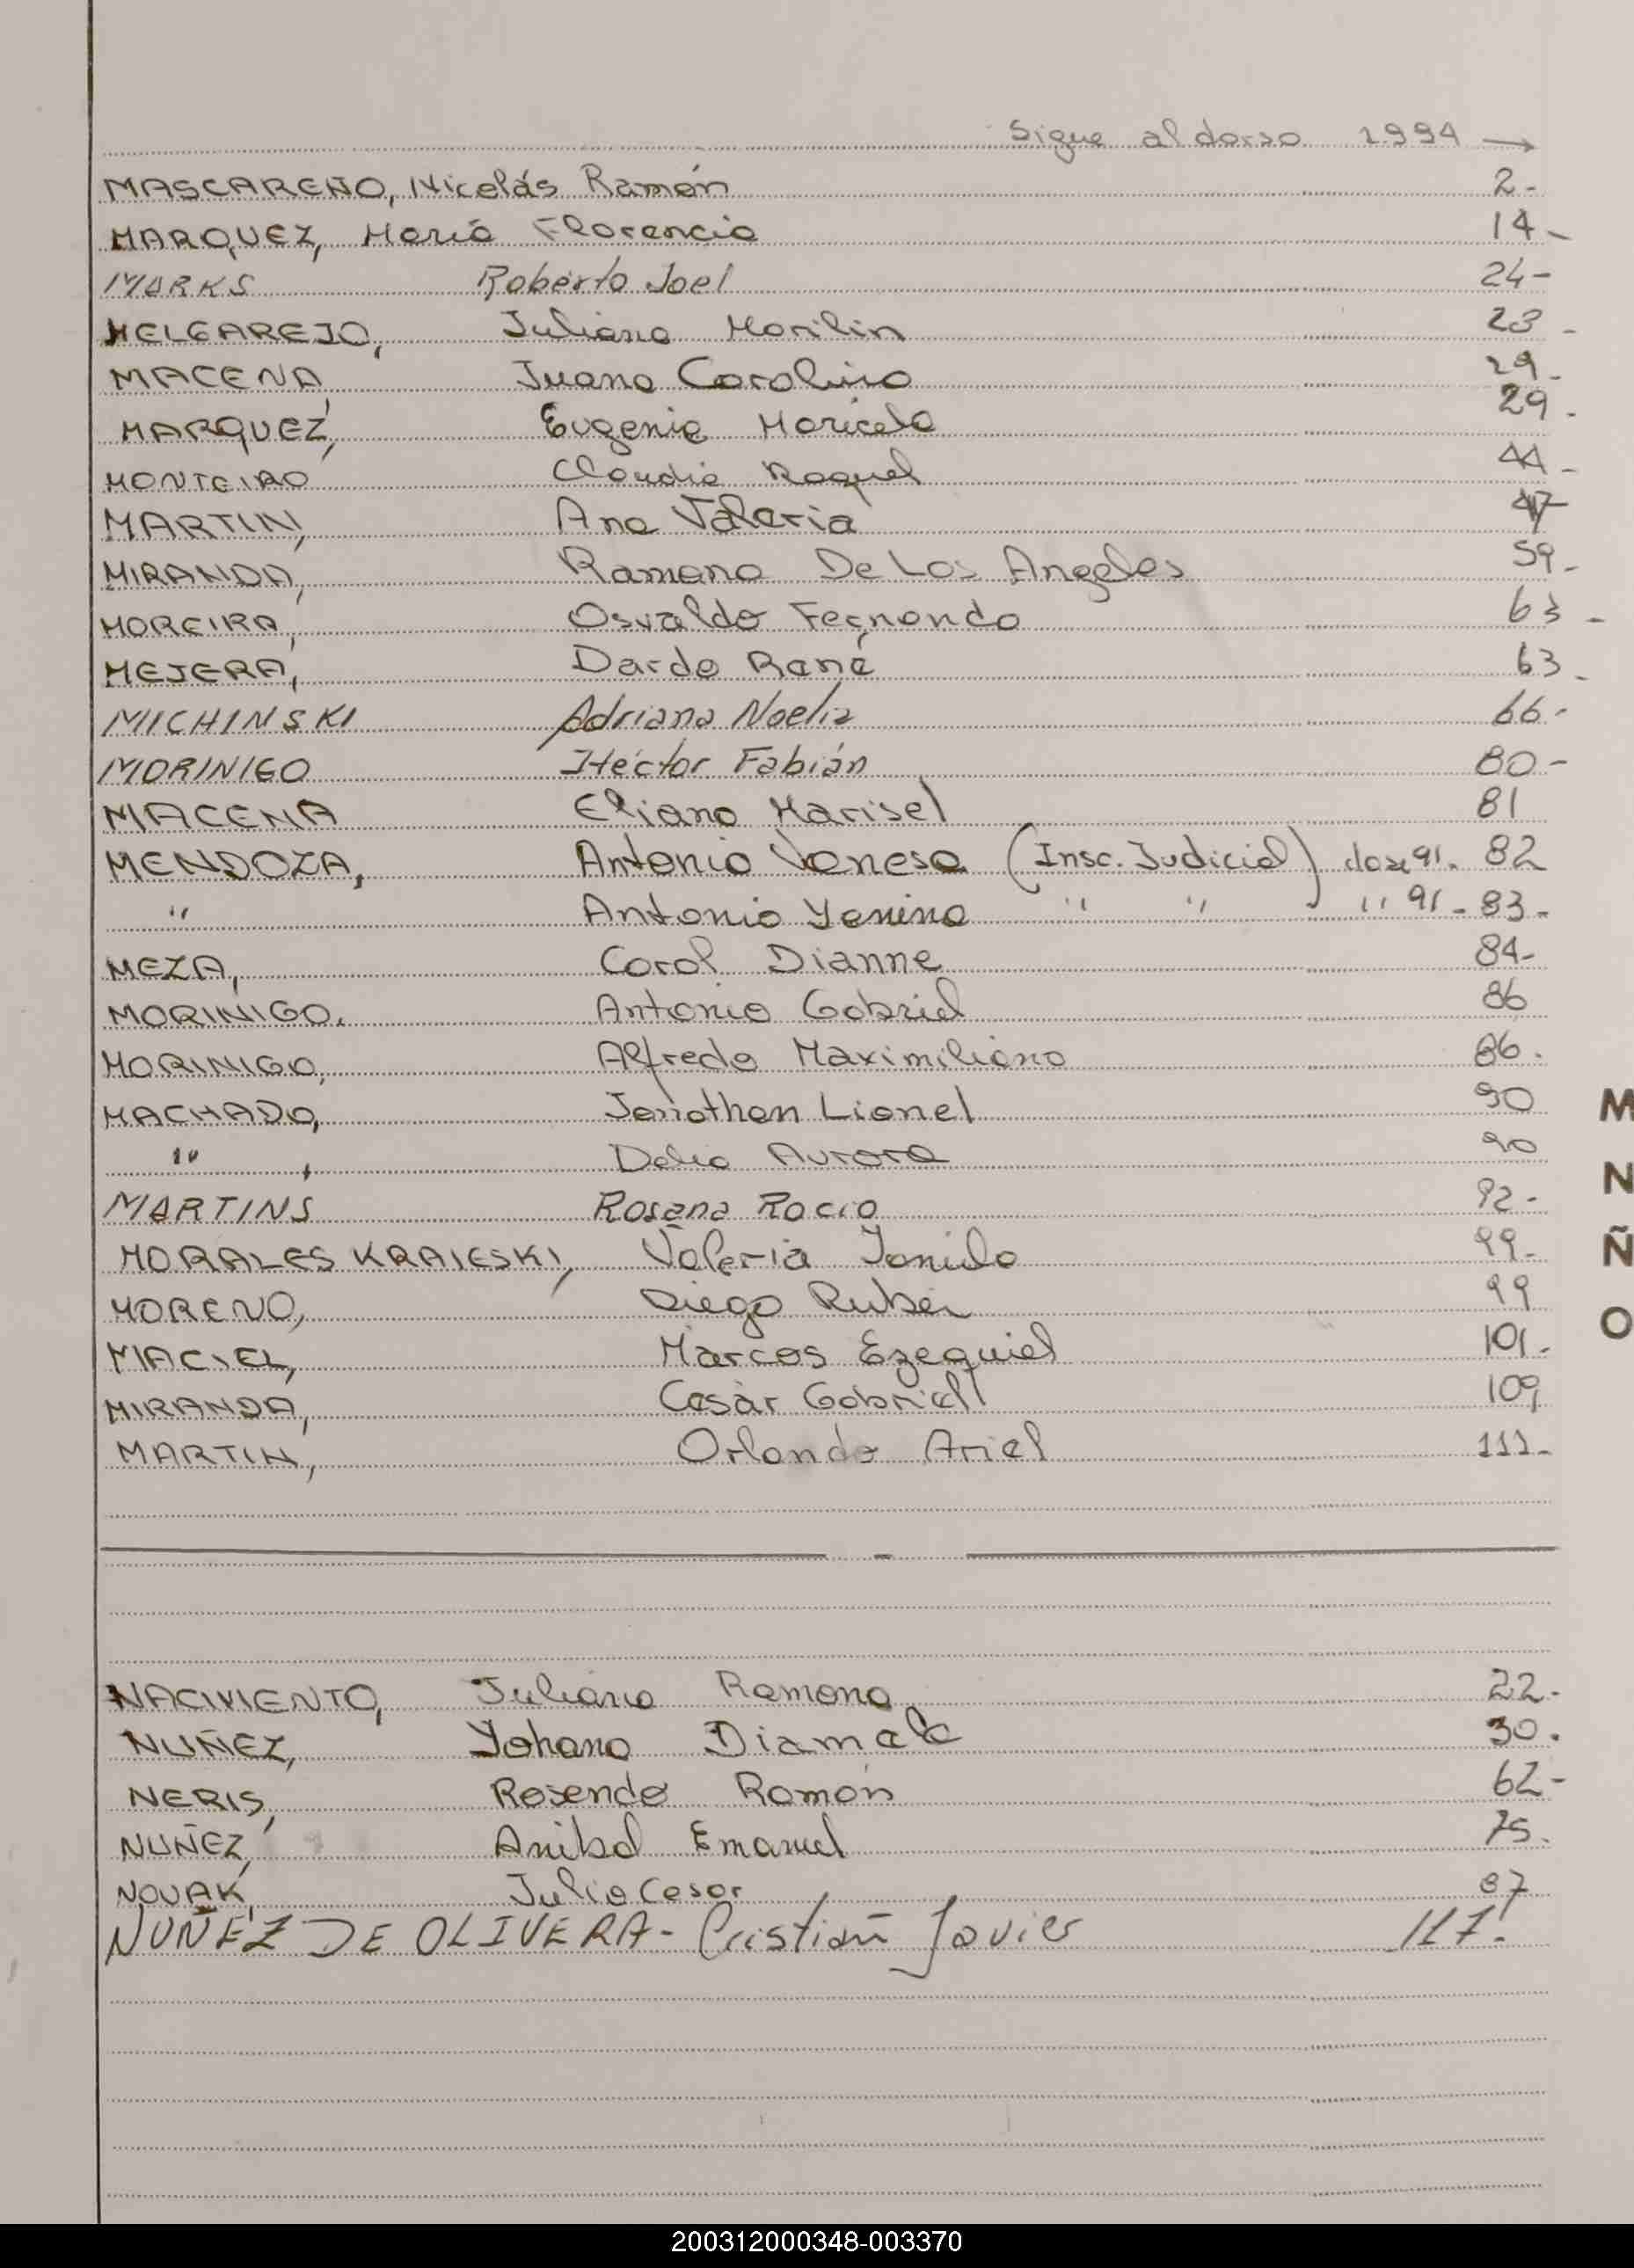 Sigue al dorso 1994 →
MASCAREÑO, Nicolás Ramón 2-
MARQUEZ, María Florencia 14-
MARKS Roberto Joel 24-
MELGAREJO, Juliana Marilin 23-
MACENA, Juana Carolina 29-
MARQUEZ, Eugenia Maricela 29-
MONTEIRO Claudia Raquel 44-
MARTIN, Ana Valeria 47
MIRANDA, Ramona De Los Angeles 59-
MOREIRA, Osvaldo Fernando 63-
MEJERA, Dardo René 63-
MICHINSKI Adriana Noelia 66-
MORINIGO Héctor Fabián 80-
MACENA Eliana Marisel 81
MENDOZA, Antonia Vanesa (Insc. Judicial) clase 91- 82
" Antonia Yanina " " " 91- 83-
MEZA, Carol Dianne 84-
MORINIGO, Antonio Gabriel 86
MORINIGO, Alfredo Maximiliano 86-
MACHADO, Jonathan Lionel 90
", Delia Aurora 90
MARTINS Rosana Rocio 92-
MORALES KRAIESKI, Valeria Yanila 99-
MORENO, Diego Ruben 99
MACIEL, Marcos Ezequiel 101-
MIRANDA, Cesàr Gabriel 109
MARTIN, Orlando Ariel 111-
M
N
Ñ
O
NACIMIENTO, Juliana Ramona 22-
NUÑEZ, Yohana Diamela 30.
NERIS, Rosendo Ramón 62-
NUÑEZ, Anibal Emanuel 75.
NOVAK, Julio Cesar 87
NUÑEZ DE OLIVERA- Cristian Javier 117.
200312000348-003370